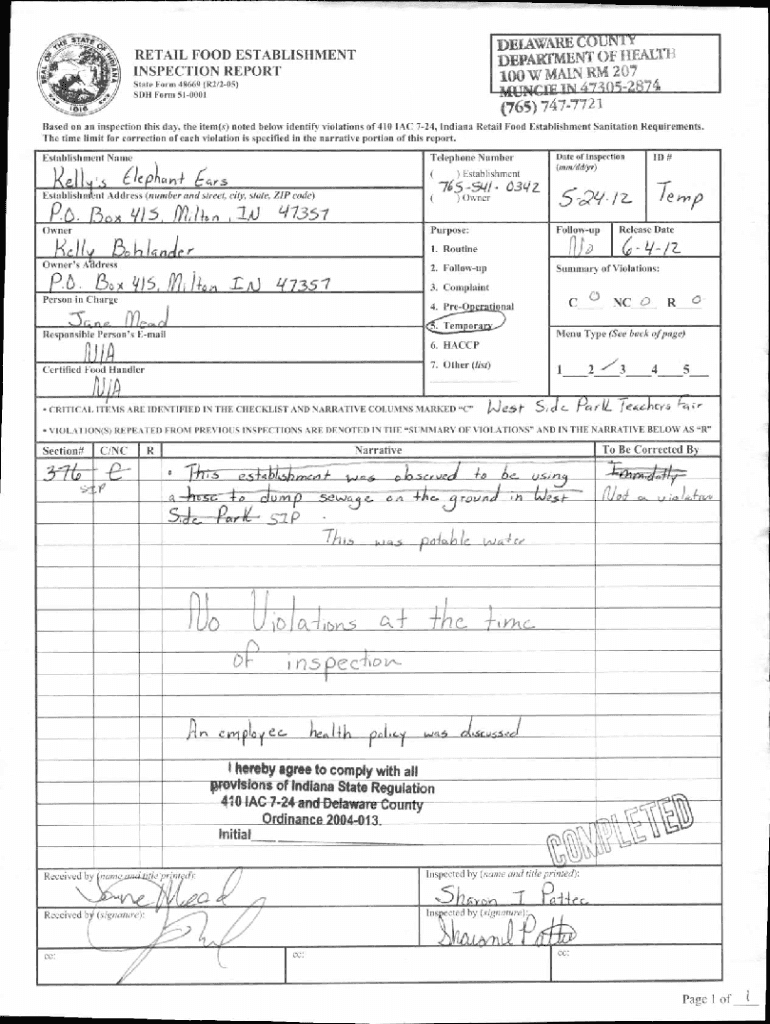 SEAL OF THE STATE OF INDIANA
1816
RETAIL FOOD ESTABLISHMENT
INSPECTION REPORT
State Form 48669 (R2/2-05)
SDH Form 51-0001
DELAWARE COUNTY
DEPARTMENT OF HEALTH
100 W MAIN RM 207
MUNCIE IN 47305-2874
(765) 747-7721
Based on an inspection this day, the item(s) noted below identify violations of 410 IAC 7-24, Indiana Retail Food Establishment Sanitation Requirements.
The time limit for correction of each violation is specified in the narrative portion of this report.
Establishment Name
Kelly's Elephant Ears
Telephone Number
( ) Establishment
765-541-0342
( ) Owner
Date of Inspection
(mm/dd/yr)
5-24-12
ID #
Temp
Establishment Address (number and street, city, state, ZIP code)
P.O. Box 415, Milton, IN 47357
Owner
Kelly Bohlander
Purpose:
1. Routine
2. Follow-up
3. Complaint
4. Pre-Operational
5. Temporary
6. HACCP
7. Other (list)
Follow-up
No
Release Date
6-4-12
Owner's Address
P.O. Box 415, Milton IN 47357
Summary of Violations:
C 0 NC 0 R 0
Person in Charge
Jane Mead
Responsible Person's E-mail
N/A
Menu Type (See back of page)
1 2 ✓ 3 4 5
Certified Food Handler
N/A
• CRITICAL ITEMS ARE IDENTIFIED IN THE CHECKLIST AND NARRATIVE COLUMNS MARKED "C"
West Side Park Teachers Fair
• VIOLATION(S) REPEATED FROM PREVIOUS INSPECTIONS ARE DENOTED IN THE "SUMMARY OF VIOLATIONS" AND IN THE NARRATIVE BELOW AS "R"
Section# C/NC R Narrative To Be Corrected By
376 C • This establishment was observed to be using Immediatly
SIP a hose to dump sewage on the ground in West Not a violation
Side Park SIP
This was potable water
No Violations at the time
of inspection
An employee health policy was discussed
I hereby agree to comply with all
provisions of Indiana State Regulation
410 IAC 7-24 and Delaware County
Ordinance 2004-013.
Initial
COMPLETED
Received by (name and title printed):
Jane Mead
Inspected by (name and title printed):
Sharon I Pattee
Received by (signature):
Inspected by (signature):
Sharon I Pattee
cc: cc: cc:
Page 1 of 1